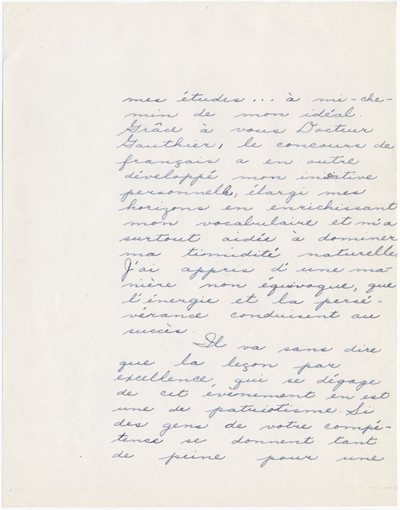 mes études... à mi-che-
min de mon idéal.
Grâce à vous Docteur
Gauthier, le concours de
français a en outre
développé mon initiative
personnelle, élargi mes
horizons en enrichissant
mon vocabulaire et m'a
surtout aidée à dominer
ma timidité naturelle.
J'ai appris d'une ma-
nière non équivoque, que
l'énergie et la persé-
vérance conduisent au
succès.
Il va sans dire
que la leçon par
excellence, qui se dégage
de cet événement en est
une de patriotisme. Si
des gens de votre compé-
tence se donnent tant
de peine pour une